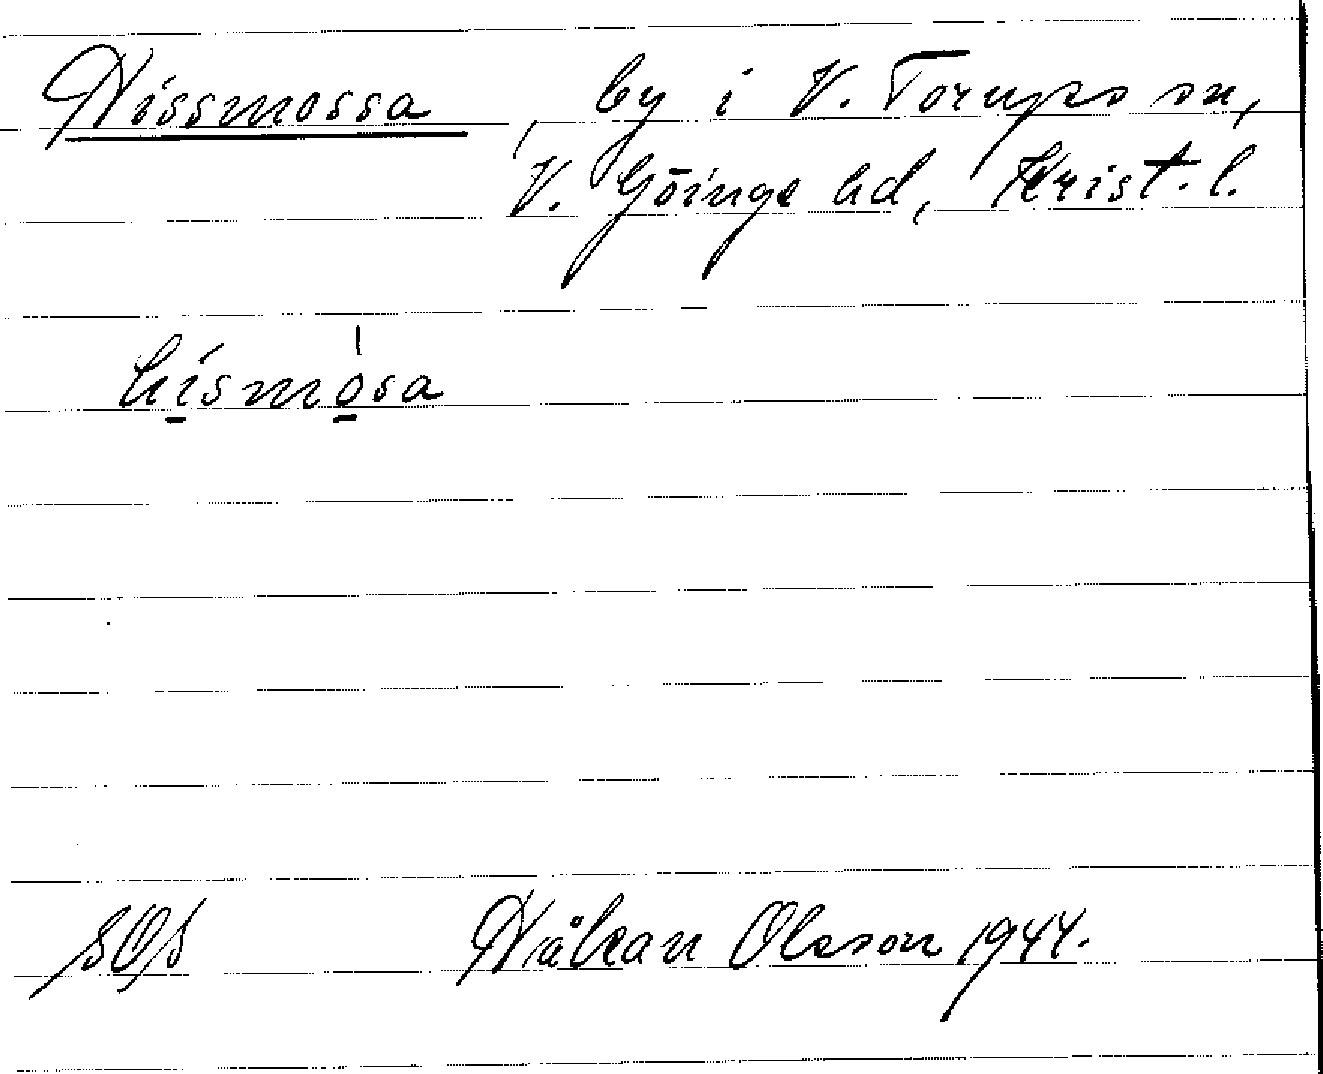 Hissmossa, by i V. Torups sn,
V. Göinge hd, Krist. l.
hísmósa
SOS Håkan Olsson 1944.